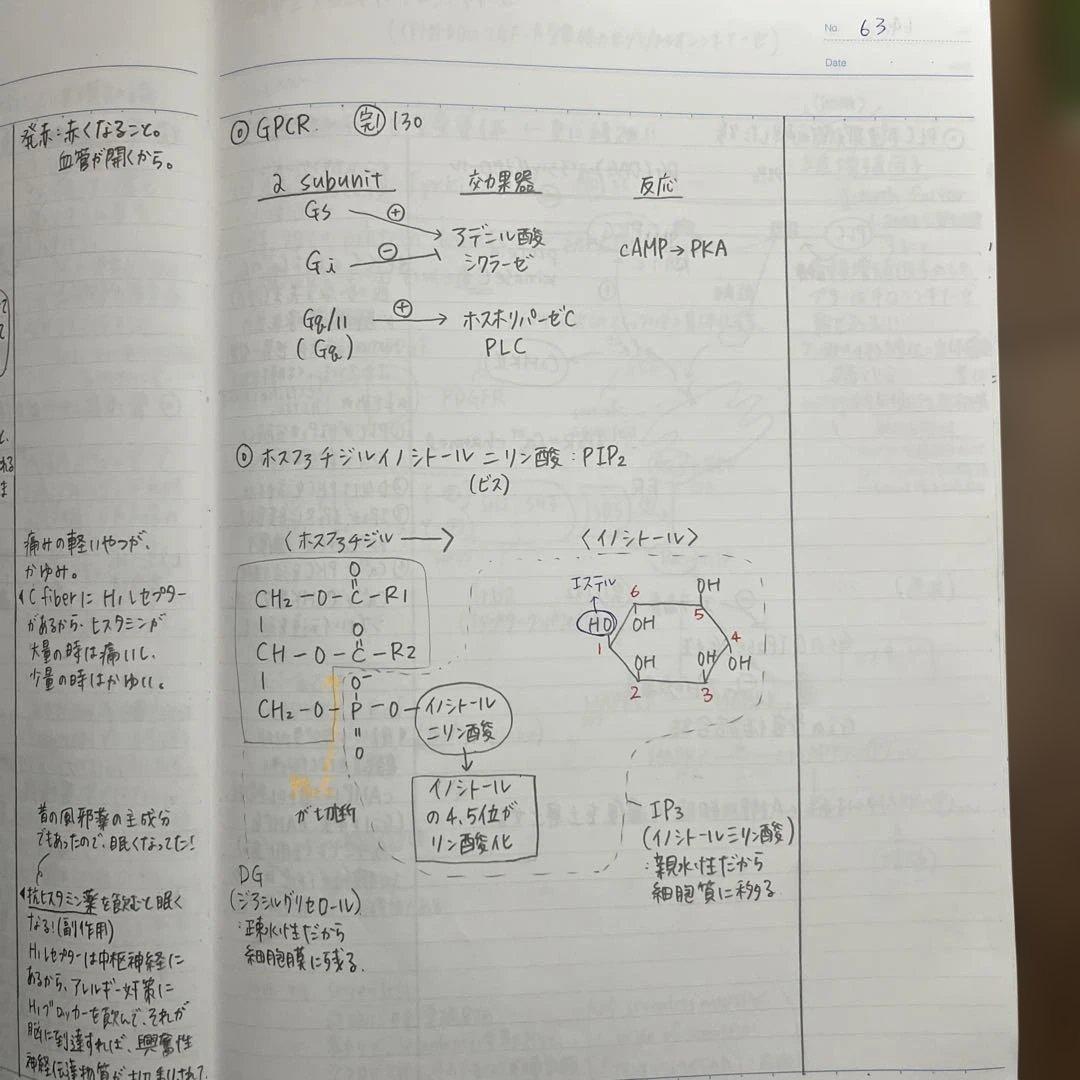 No. 63
Date
発赤:赤くなること。
血管が開くから。
痛みの軽いやつが、
かゆみ。
C fiberに H1レセプター
があるから、ヒスタミンが
大量の時は痛いし、
少量の時はかゆい。
昔の風邪薬の主成分
でもあったので、眠くなってた!
抗ヒスタミン薬を飲むと眠く
なる!(副作用)
H1レセプターは中枢神経に
あるから、アレルギー対策に
H1ブロッカーを飲んで、それが
脳に到達すれば、興奮性
神経伝達物質が
◎ GPCR 完1 130
α subunit 効果器 反応
Gs ⊕
アデニル酸
シクラーゼ
Gi ⊖
cAMP→PKA
Gq/11 ⊕ → ホスホリパーゼC
(Gq) PLC
◎ ホスファチジルイノシトール 二リン酸:PIP2
(ビス)
〈ホスファチジル →
〈イノシトール〉
O
CH2 - O - C - R1
O
CH - O - C - R2
O-
CH2 - O - P - O - イノシトール
二リン酸
O
イノシトール
の4,5位が
リン酸化
エステル
HO
1
6
OH
OH
5
4
OH
OH
3
OH
2
が切断
DG
(ジアシルグリセロール)
:疎水性だから
細胞膜に残る.
IP3
(イノシトール三リン酸)
:親水性だから
細胞質に移る